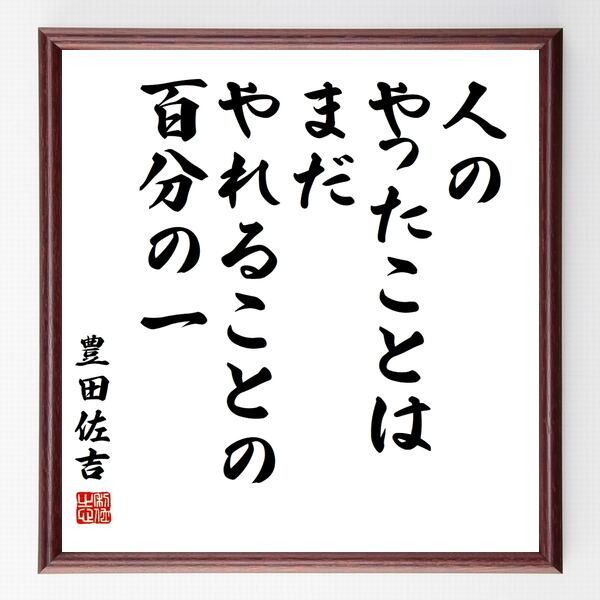 人の
やったことは
まだ
やれることの
百分の一
豊田佐吉